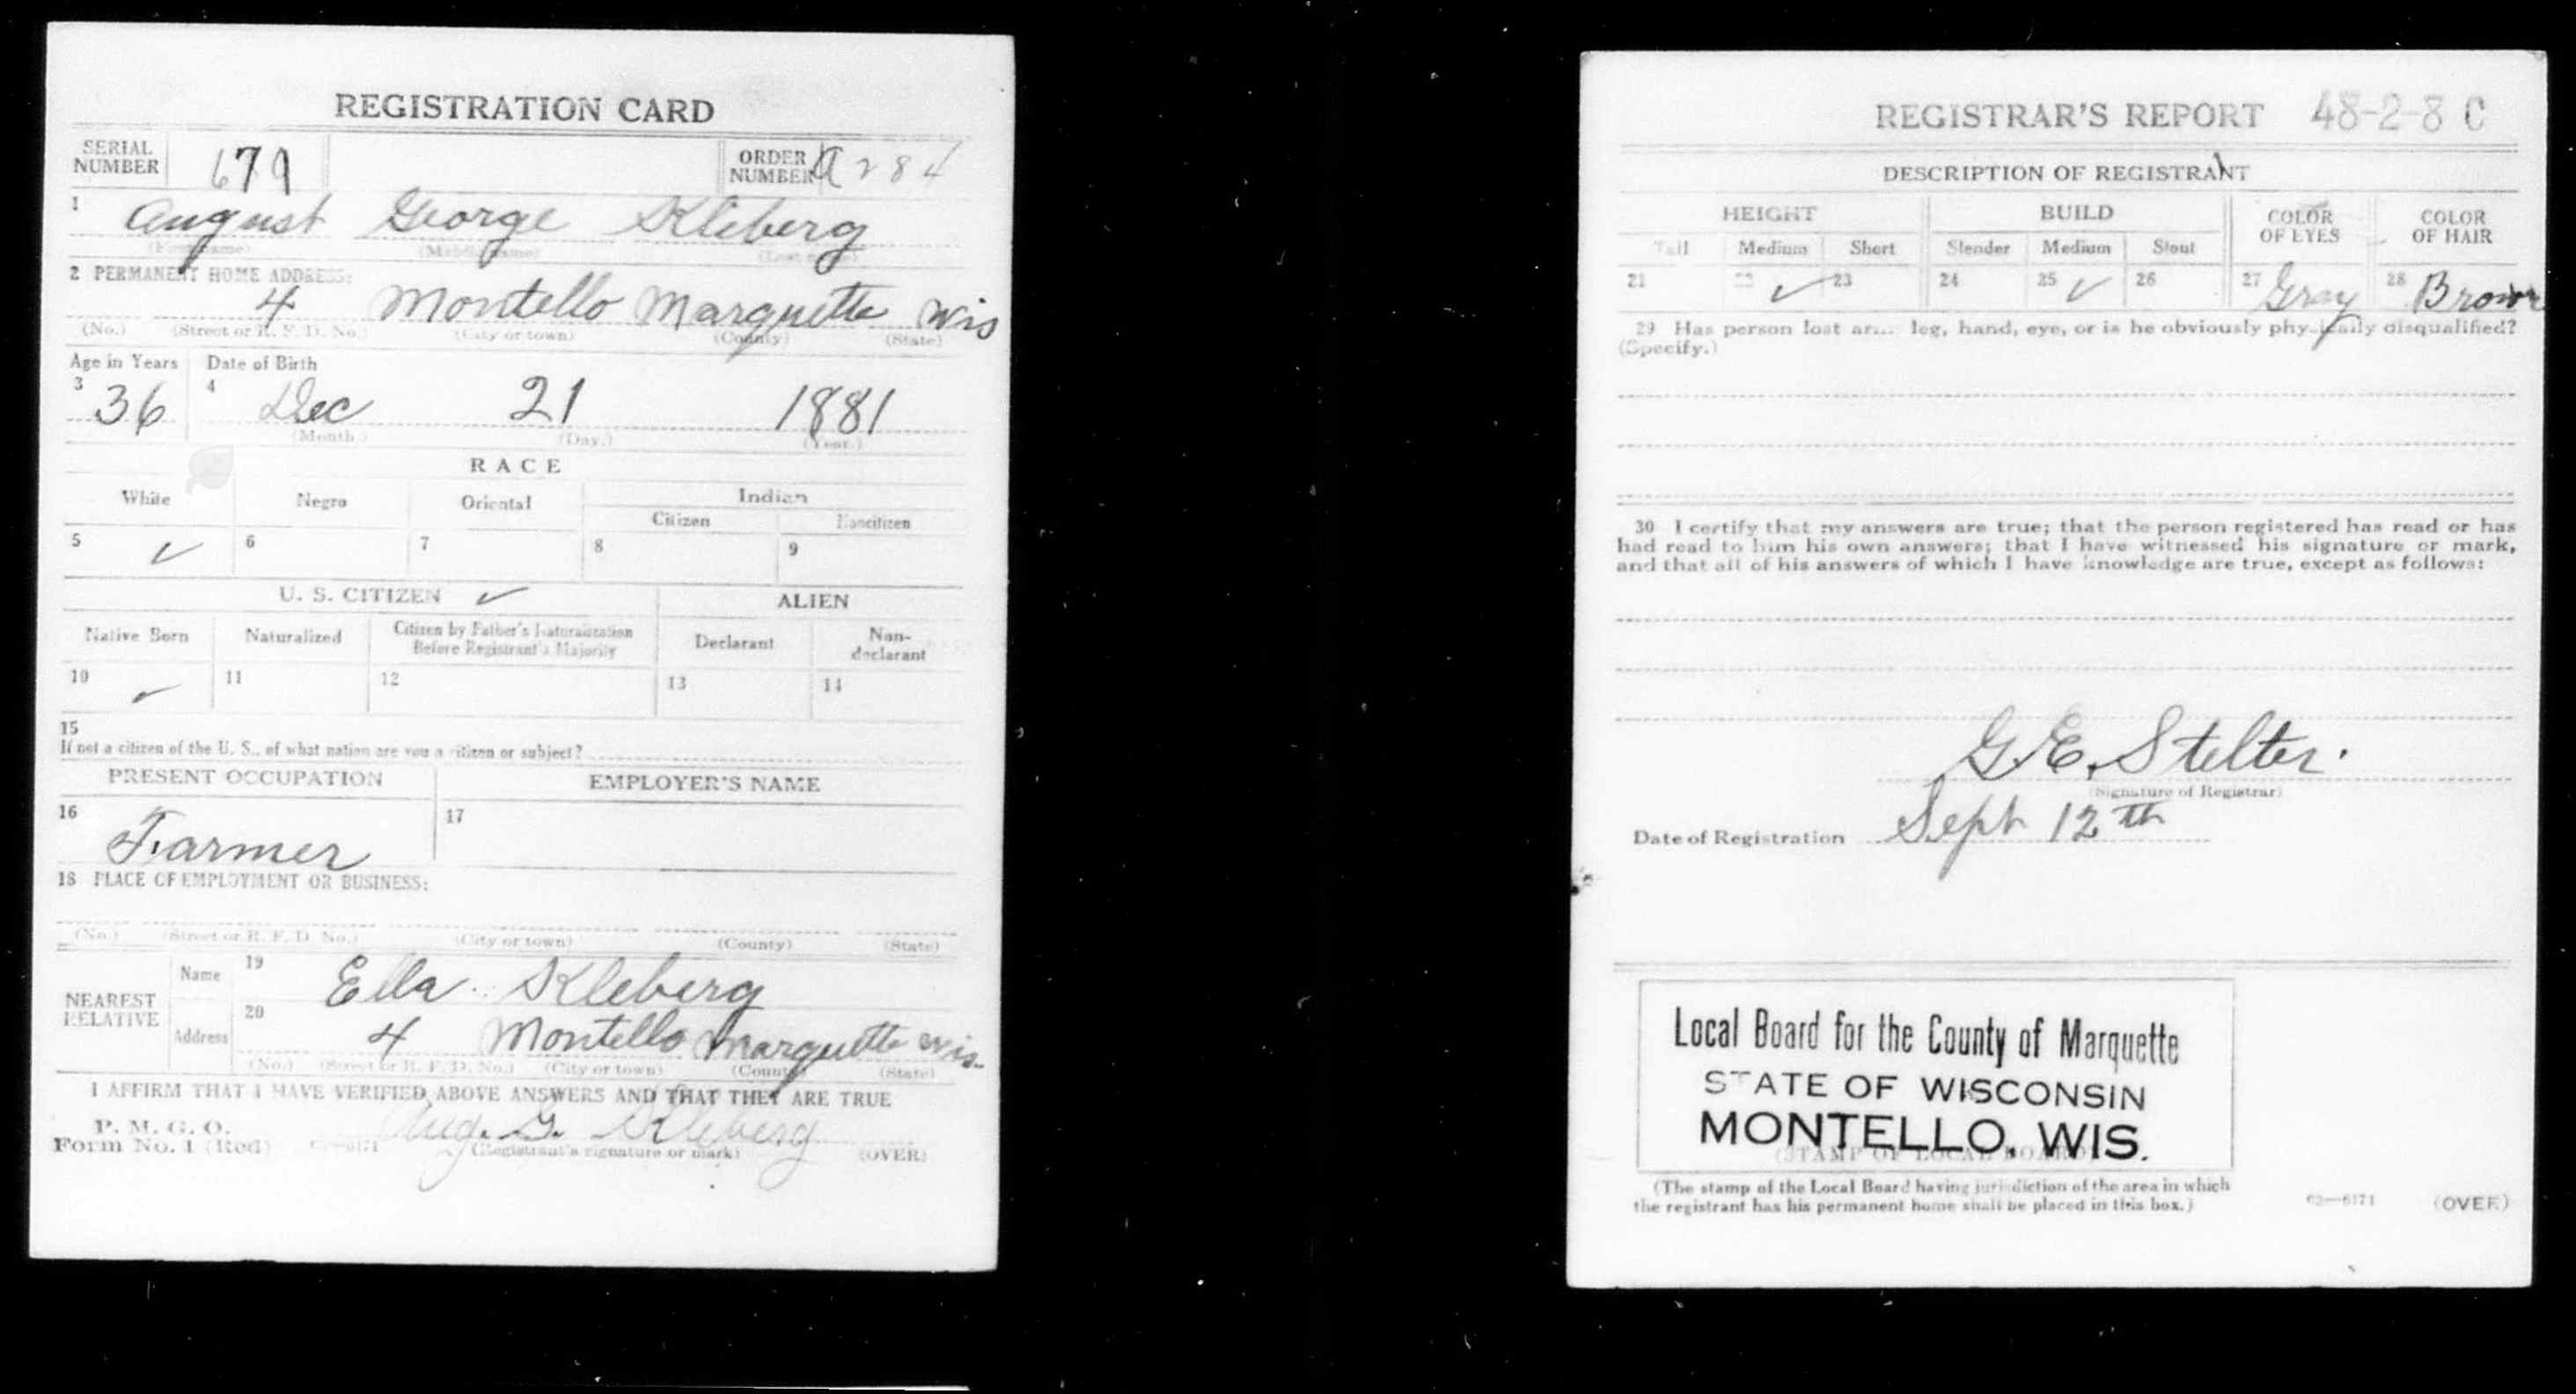 REGISTRATION CARD
SERIAL NUMBER 679 ORDER NUMBER A 284
1 August George Kleberg
(First name) (Middle name) (Last name)
2 PERMANENT HOME ADDRESS:
4 Montello Marquette Wis
(No.) (Street or R. F. D. No.) (City or town) (County) (State)
Age in Years Date of Birth
3 36 4 Dec 21 1881
(Month.) (Day.) (Year.)
RACE
White Negro Oriental Indian
Citizen Noncitizen
5 ✓ 6 7 8 9
U. S. CITIZEN ✓ ALIEN
Native Born Naturalized Citizen by Father's Naturalization Before Registrant's Majority Declarant Non-declarant
10 ✓ 11 12 13 14
15
If not a citizen of the U. S., of what nation are you a citizen or subject?
PRESENT OCCUPATION EMPLOYER'S NAME
16 Farmer 17
18 PLACE OF EMPLOYMENT OR BUSINESS:
(No.) (Street or R. F. D. No.) (City or town) (County) (State)
NEAREST RELATIVE Name 19 Ella Kleberg
Address 20 4 Montello Marquette Wis.
(No.) (Street or R. F. D. No.) (City or town) (County) (State)
I AFFIRM THAT I HAVE VERIFIED ABOVE ANSWERS AND THAT THEY ARE TRUE
P. M. G. O.
Form No. 1 (Red) Aug. G. Kleberg
(Registrant's signature or mark) (OVER)
REGISTRAR'S REPORT 48-2-8 C
DESCRIPTION OF REGISTRANT
HEIGHT BUILD COLOR OF EYES COLOR OF HAIR
Tall Medium Short Slender Medium Stout
21 22 ✓ 23 24 25 ✓ 26 27 Gray 28 Brown
29 Has person lost arm, leg, hand, eye, or is he obviously physically disqualified?
(Specify.)
30 I certify that my answers are true; that the person registered has read or has
had read to him his own answers; that I have witnessed his signature or mark,
and that all of his answers of which I have knowledge are true, except as follows:
G. E. Stelter.
(Signature of Registrar)
Date of Registration Sept 12th
Local Board for the County of Marquette
STATE OF WISCONSIN
MONTELLO, WIS.
(STAMP OF LOCAL BOARD)
(The stamp of the Local Board having jurisdiction of the area in which
the registrant has his permanent home shall be placed in this box.)
(OVER)